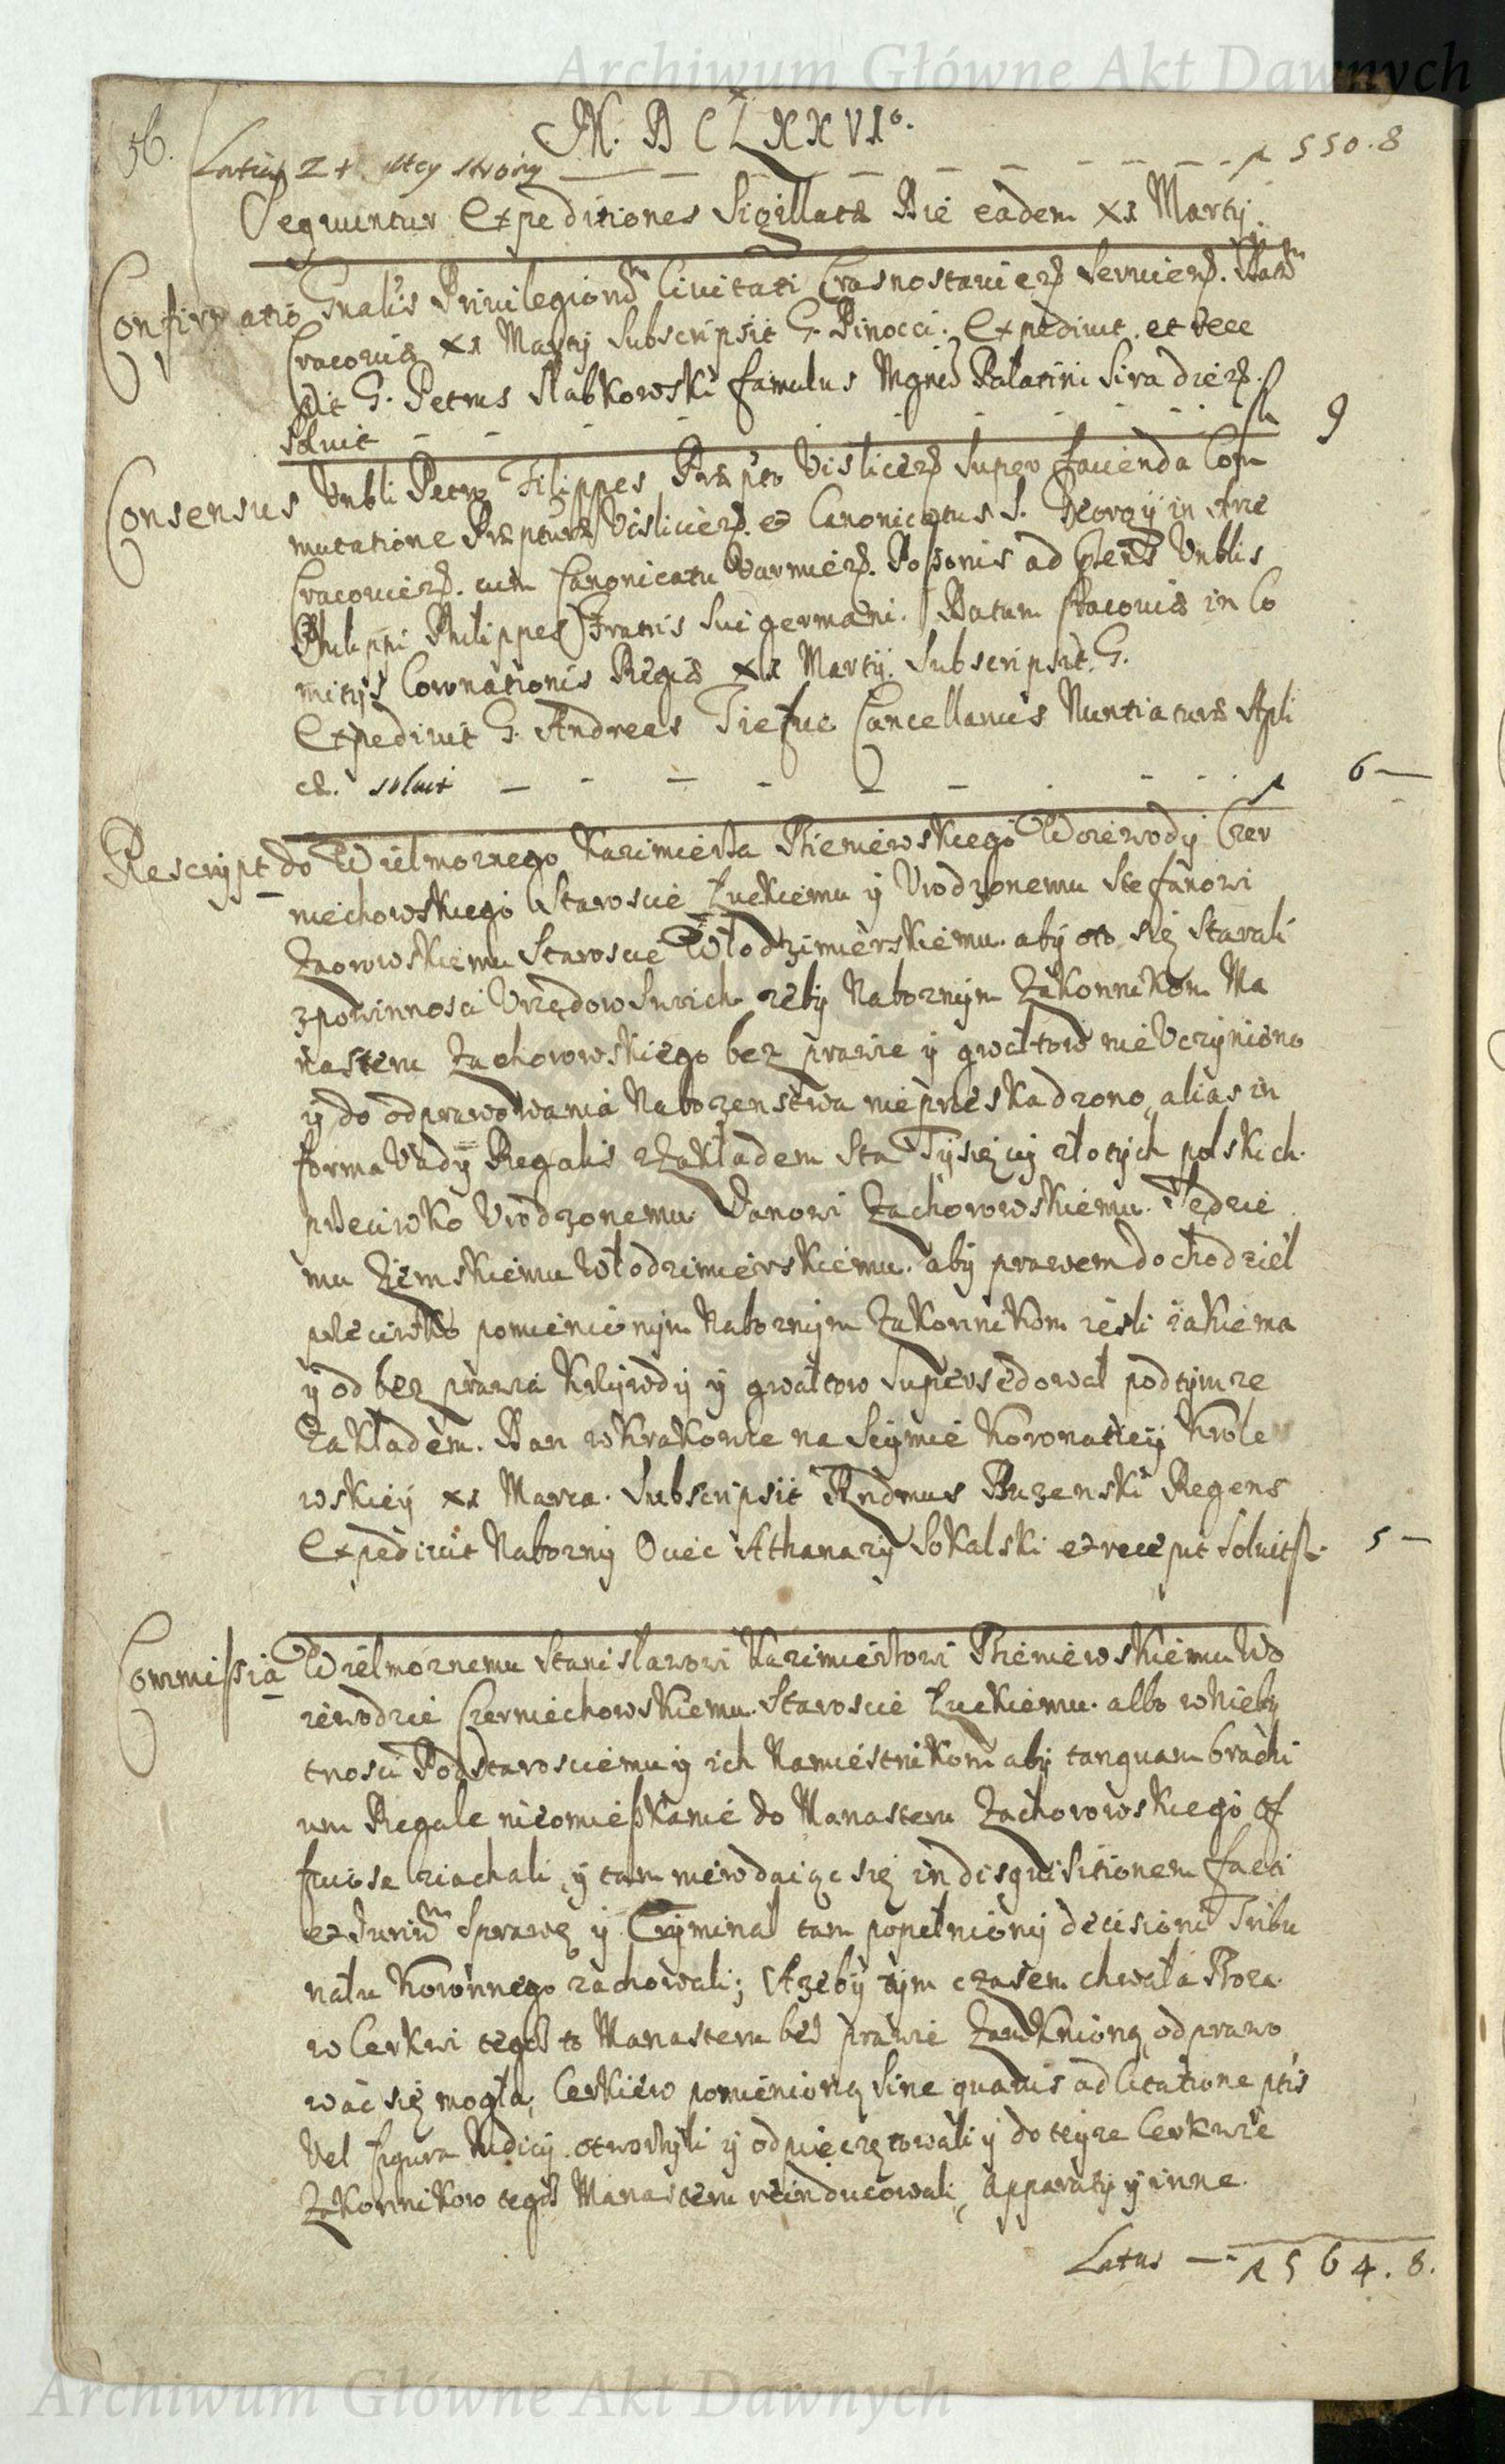 Archiwum Główne Akt Dawnych
56.
M. D C L X X V I°.
Latus z tey strony — fl 550.8
Sequuntur Expeditiones Sigillatæ Die eadem XI Martij.
Confirmatio Gnalis Privilegiorum Civitati Crasnostavien. Servien. Datum
Cracoviæ XI Martij Subscripsit G. Pinocci. Expedivit et rece
pit G. Petrus Slabkowski famulus Mgnci Palatini Siradien.
Solvit — fl 9
Consensus Vnbli Petro Filippes Præpto Vislicen. super facienda Com
mutatione Præpturæ Vislicien. et Canonicatus S. Georgij in Arce
Cracovien. cum Canonicatu Varmien. Personis ad Vnblis
Philippi Philippes Fratris sui germani. Datum Cracoviæ in Co
mitijs Coronationis Regiæ XI Martij. Subscripsit G.
Expedivit G. Andreas Cancellarius Nuntiaturæ Apli
cæ. solvit — fl 6 —
Rescript do Wielmoznego Kazimierza Bieniewskiego Woiewody Czer
niechowskiego Staroscie Łuckiemu y Vrodzonemu Stefanowi
Staroscie Włodzimierskiemu. aby oto się starali
zpowinnosci Vrzędow swoich zeby Naboznym Zakonnikom Ma
nasteru Zachorowskiego bez prawie y gwałtow nie Vczyniono
y do odprawowania Nabozenstwa nieprzeskadzono, alias in
forma Vadij Regalis zzakładem Sta Tysięcy złotych polskich.
przeciwko Vrodzonemu Janowi Zachorowskiemu. Sędzie
mu Ziemskiemu Włodzimierskiemu. aby prawem dochodził
przeciwko pomienionym Naboznym Zakonnikom iesli iakie ma
y od bez prawia krzywdy y gwałtow supersedował pod tymze
Zakładem. Dan w Krakowie na Seymie Koronatiey Krole
wskiey XI Marca. Subscripsit Rndmus Buzenski Regens
Expedivit Nabozny Ociec Athanazy Sokalski et recepit Solvit fl. 5 —
Commissia Wielmoznemu Stanisławowi Kazimierzowi Bieniewskiemu Wo
iewodzie Czerniechowskiemu. Staroscie Łuckiemu. albo w Nieby
tnosci Podstarosciemu y ich Namiestnikom aby tanquam brachi
um Regale nieomieszkanie do Manasteru Zachorowskiego of
ficiose ziachali, y tam niewdaiąc się in disquisitionem facti
et Jurium Sprawę y Cryminał tam popełniony decisioni Tribu
nału Koronnego zachowali; Azeby tym czasem chwała Boza
w Cerkwi tegoz to Manasteru bez prawie Zamknioną odprawo
wac się mogła, Cerkiew pomienioną sine quavis ad Citatione ptis
Vel figura Iudicij. otworzyli y odpieczętowali y do teyze Cerkwie
Zakonnikow tegoż Manasteru reinducowali, Apparaty y inne.
Latus — fl 564.8.
Archiwum Główne Akt Dawnych